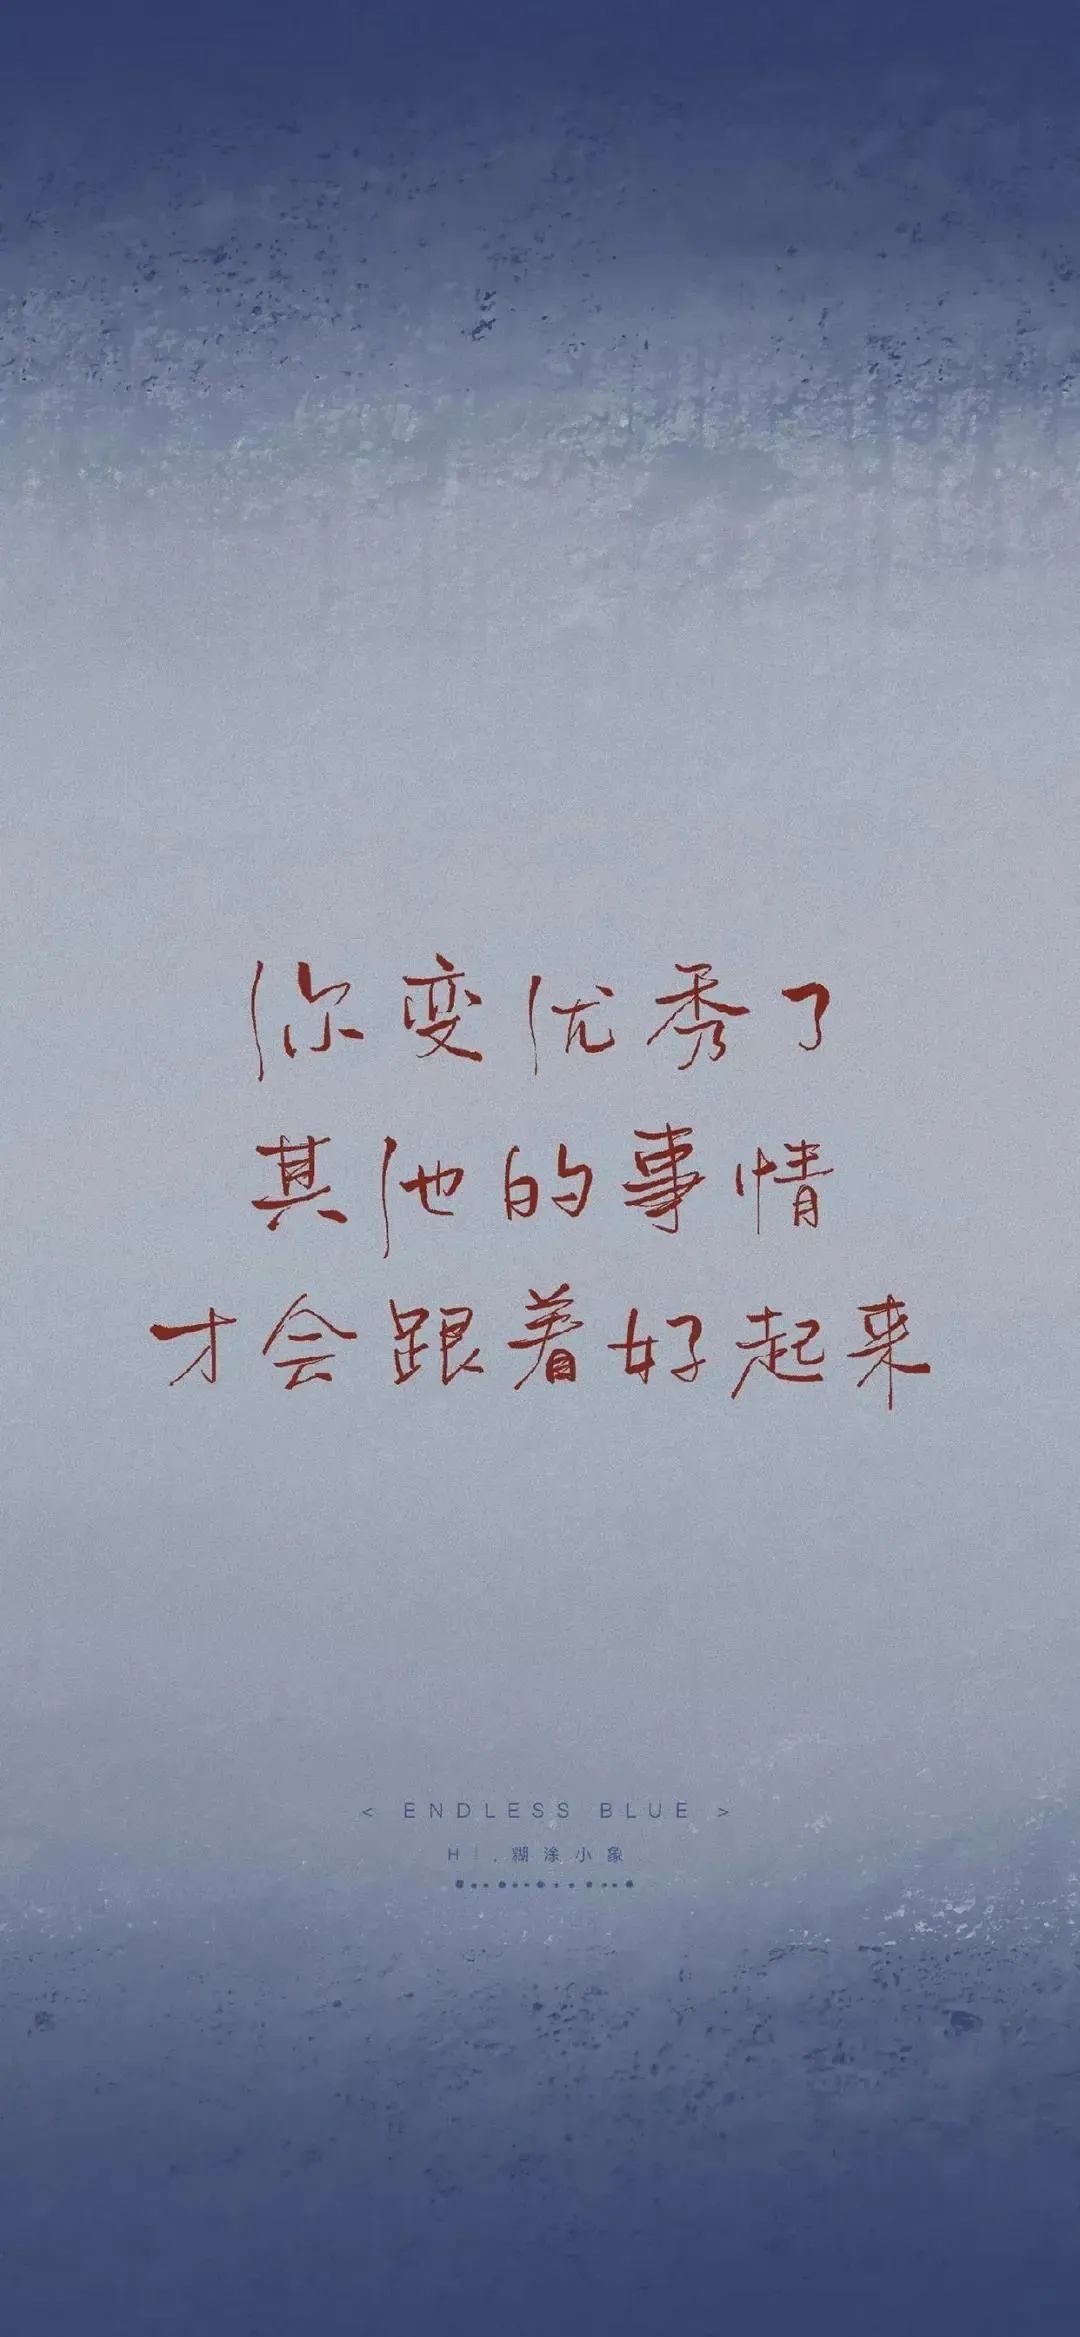 你变优秀了
其他的事情
才会跟着好起来
< ENDLESS BLUE >
HI,糊涂小象